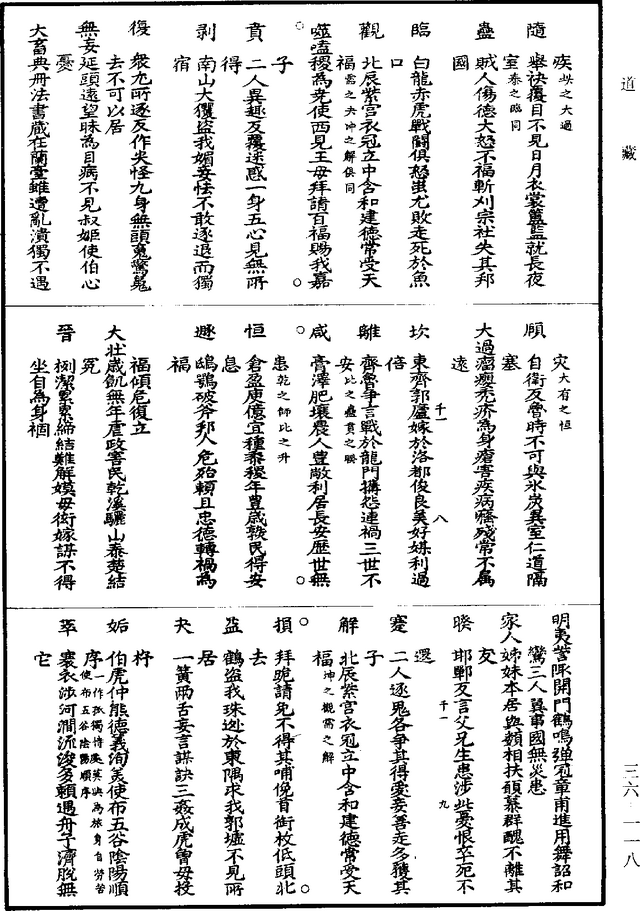 道藏
疾 比之大過
隨 舉袂覆目不見日月衣裳簠簋就長夜
室 泰之臨同
蠱 賊人傷德大怒不福斬刈宗社失其邦
國
臨 白龍赤虎戰鬬俱怒蚩尤敗走死於魚
口
觀 北辰紫宮衣冠立中含和建德常受天
福 需之夬坤之解俱同
噬嗑稷為堯使西見王母拜請百福賜我嘉
子
賁 二人異趣反覆迷惑一身五心見無所
得
剥 南山大玃盜我媚妾怯不敢逐退而獨
宿
復 眾尤所逐反作大怪九身無頭䰟驚鬼
去不可以居
無妄延頭遠望眛為目病不見叔姬使伯心
憂
大畜典冊法書藏在蘭臺雖遭亂潰獨不遇
災 大有之恒
頤 自衛反魯時不可與氷炭異室仁道隔
塞
大過瘤癭禿疥為身瘡害疾病癃殘常不屬
逺
千一 八
坎 東齊郭廬嫁於洛都俊良美好媒利過
倍
離 齊魯爭言戰於龍門搆怨連禍三世不
安 比之蠱賁之睽
咸 膏澤肥壤農人豐敞利居長安歷世無
患 乾之師比之升
恒 倉盈庾億宜種黍稷年豐歲熟民得安
息
遯 鴟鴞破斧邦人危殆賴旦忠德轉禍為
福傾危復立
大壯歲飢無年虐政害民乾溪驪山秦楚結
冤
晉 栵潔累累締結難解嫫母衒嫁謀不得
坐自為身禍
明夷營陳開門鶴鳴彈冠章甫進用舞韶和
鸞三人翼事國無災患
家人姊妹本居與類相扶願慕群醜不離其
友
千一 九
睽 邯鄲反言父兄生患涉此憂恨卒死不
還
蹇 二人逐兎各爭其得愛妾善走多獲其
子
解 北辰紫宮衣冠立中含和建德常受天
福 坤之觀需之解
損 拜跪請免不得其哺俛首銜枚低頭北
去
益 鶴盜我珠逃於東隅求我郭墟不見所
居
夬 一簧兩舌妄言謀訣三姦成虎曾母投
杼
姤 伯虎仲熊德義洵美使布五谷陰陽順
序 一作孤獨特處莫與為旅身自勞苦使布五谷陰陽順序
萃 褰衣涉河澗流浚多賴遇舟子濟脫無
它
三六－一一八